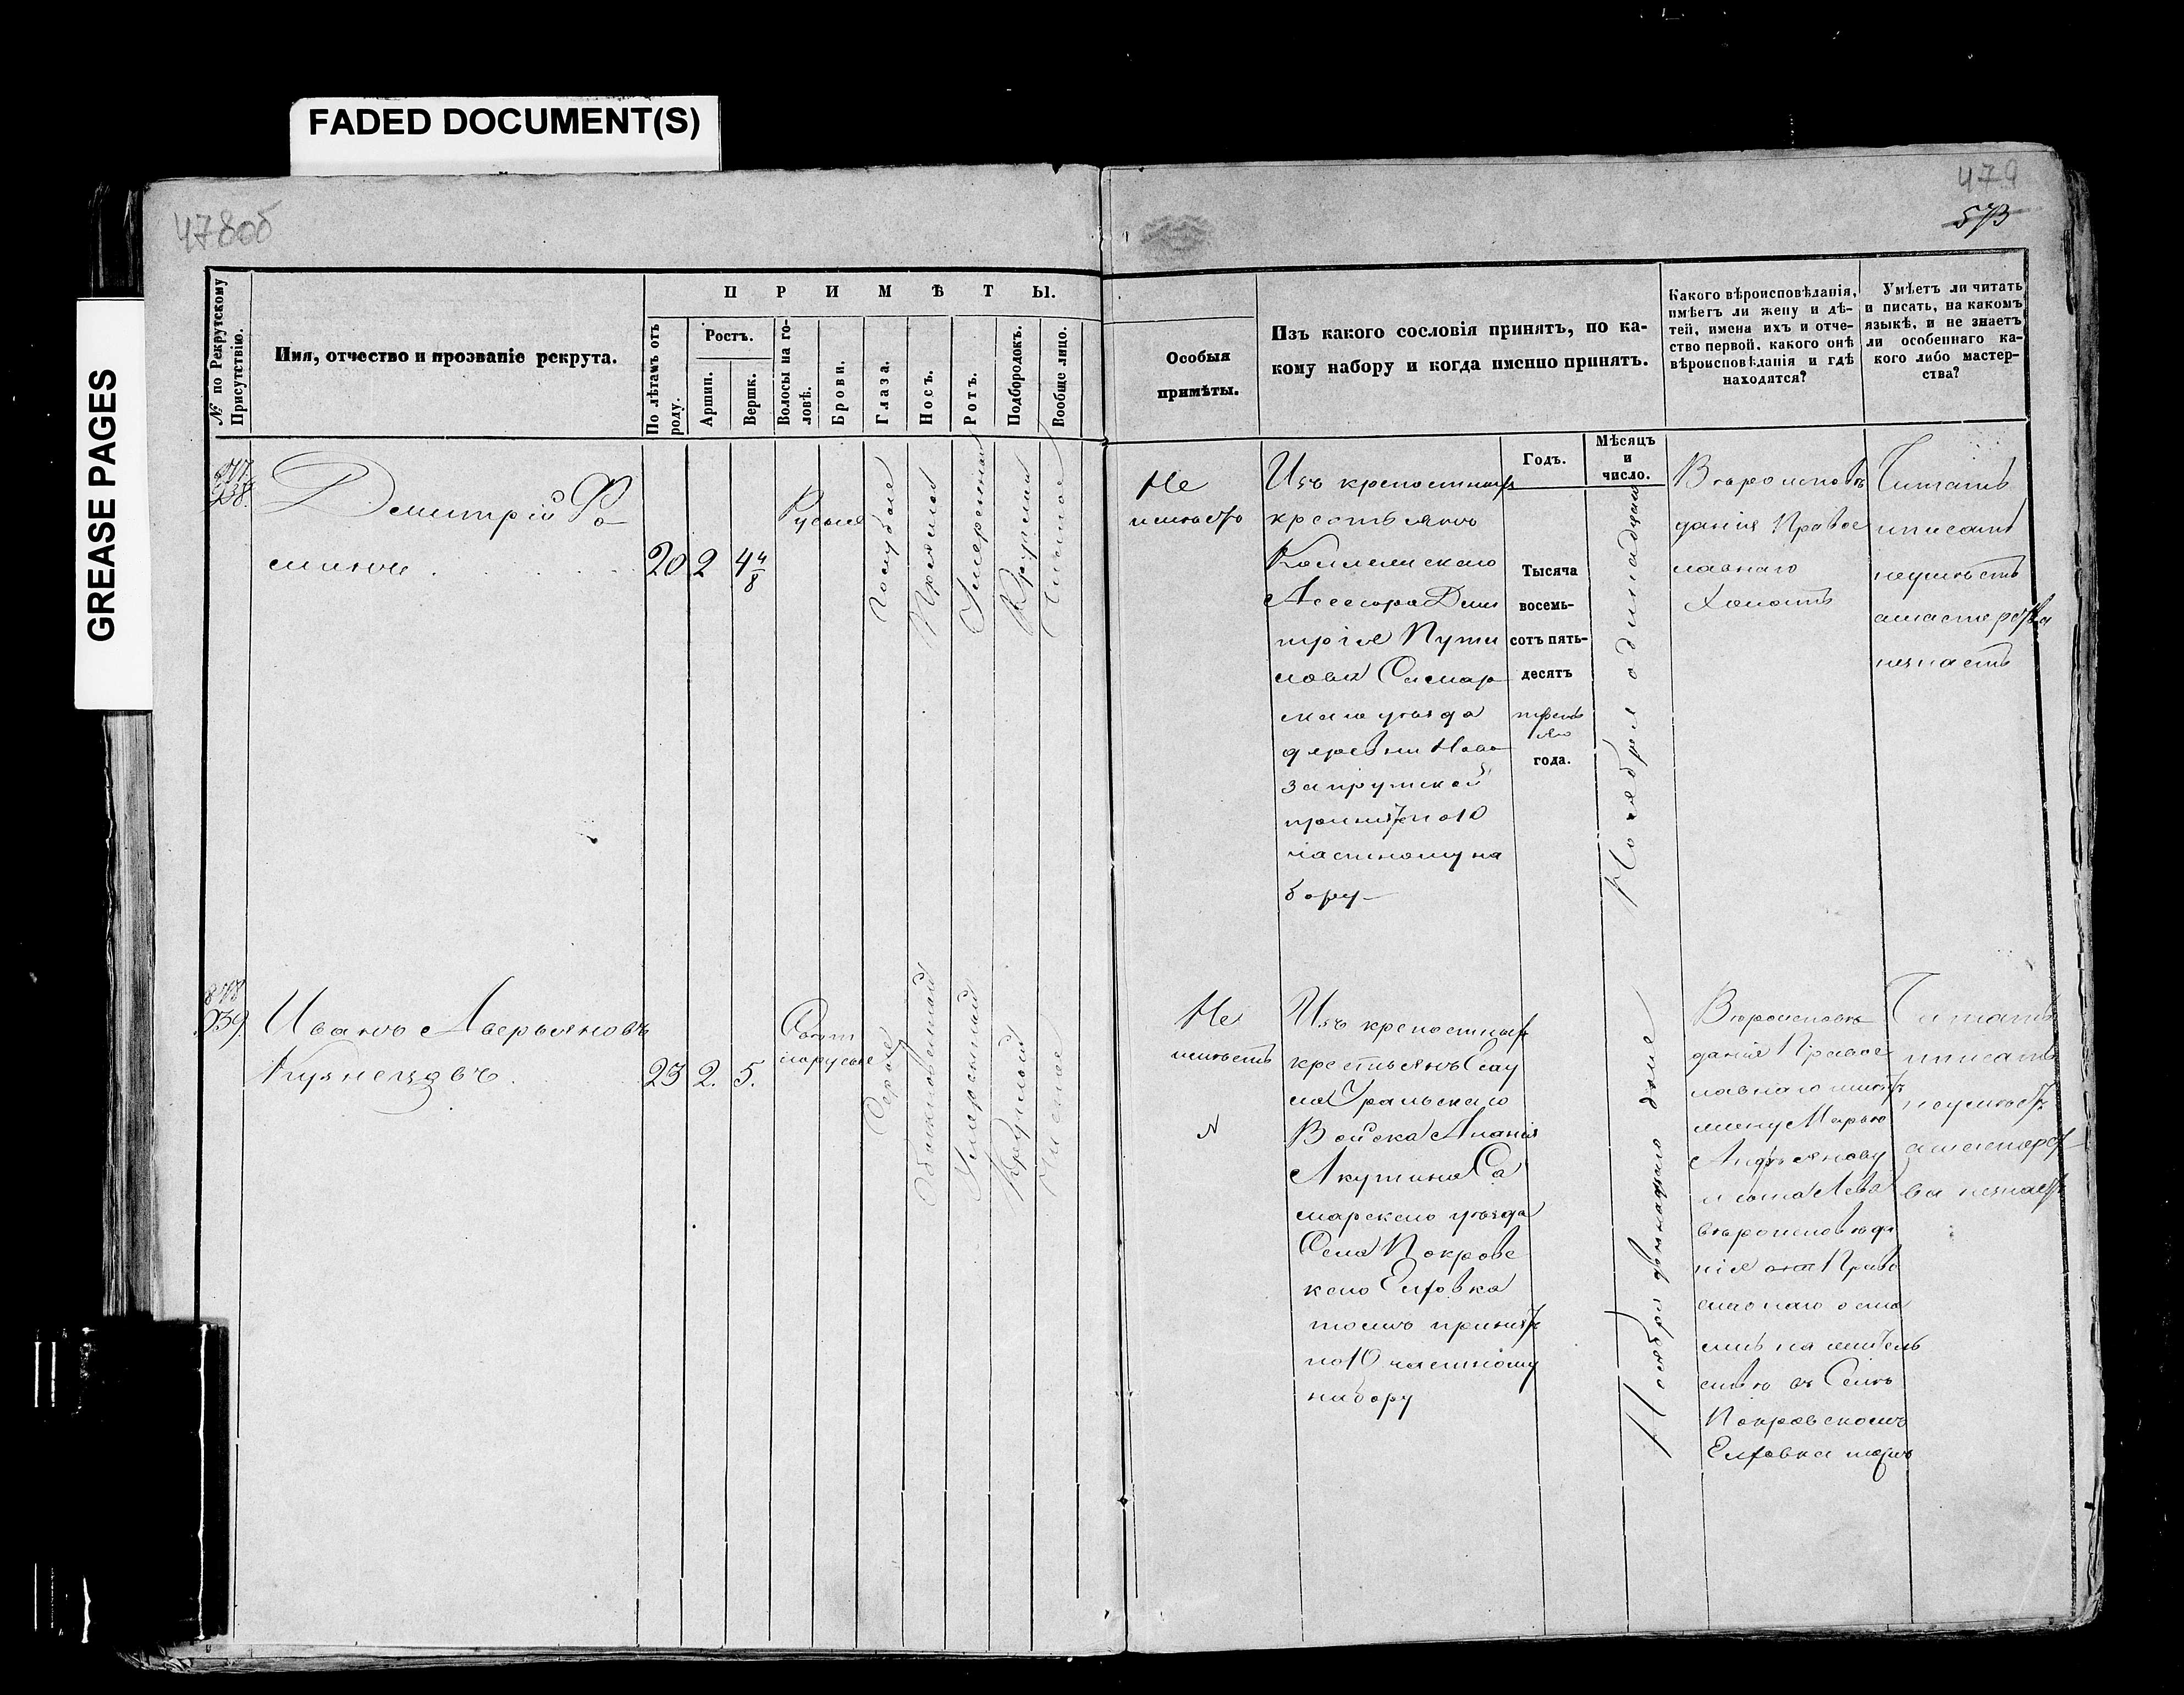 FADED DOCUMENT(S)
GREASE PAGES
478об
479
573
№ по Рекрутскому
Присутствію.
Имя, отчество и прозваніе рекрута.
П Р И М Ѣ Т Ы.
По лѣтамъ отъ
роду.
Ростъ.
Аршин.
Вершк.
Волосы на го-
ловѣ.
Брови.
Глаза.
Носъ.
Ротъ.
Подбородокъ.
Вообще лицо.
Особыя
примѣты.
Изъ какого сословія принятъ, по ка-
кому набору и когда именно принятъ.
Какого вѣроисповѣданія,
имѣетъ ли жену и дѣ-
тей, имена ихъ и отче-
ство первой, какого онѣ
вѣроисповѣданія и гдѣ
находятся?
Умѣетъ ли читать
и писать, на какомъ
языкѣ, и не знаетъ
ли особеннаго ка-
кого либо мастер-
ства?
Годъ.
Мѣсяцъ
и
число.
938.
Дмитрій Фо-
минъ
20 2 4 4/8
Русые
Голубые
Прямой
Умеренный
Круглый
Чистое
Не
имѣетъ
Изъ крепостныхъ
крестьянъ
Коллежскаго
Асесора Дми
трія Пути
лова Самар
скаго уѣзда
деревни Ново
запрудской
принятъ по 10
частному на
бору
Тысяча
восемь-
сотъ пять-
десятъ
третьяго
года.
Ноября одинадцатаго
Вѣроисповѣ
данія Правос
лавнаго
Холостъ
Читать
и писать
неумѣетъ
а мастерства
незнаетъ
939.
Иванъ Аверьяновъ
Кузнецовъ.
23 2. 5.
Свѣт
лорусые
Серые
Обыкновенный
Умеренный
Круглый
Чистое
Не
имѣетъ
Изъ крепостныхъ
крестьянъ Есау
ла Уральскаго
Войска Ананія
Акутина Са
марскаго уѣзда
Села Покровс
каго Елховка
тожъ принятъ
по 10 частному
набору
Ноября двенадцатаго дня
Вѣроисповѣ
данія Правос
лавнаго имѣетъ
жену Марью
и сына Льва
вѣроисповѣда
нія Право
славнаго оста
лись на житель
ство въ Селѣ
Покровскомъ
Елховка тожъ
Читать
и писать
неумѣетъ
а мастерст
ва незнаетъ